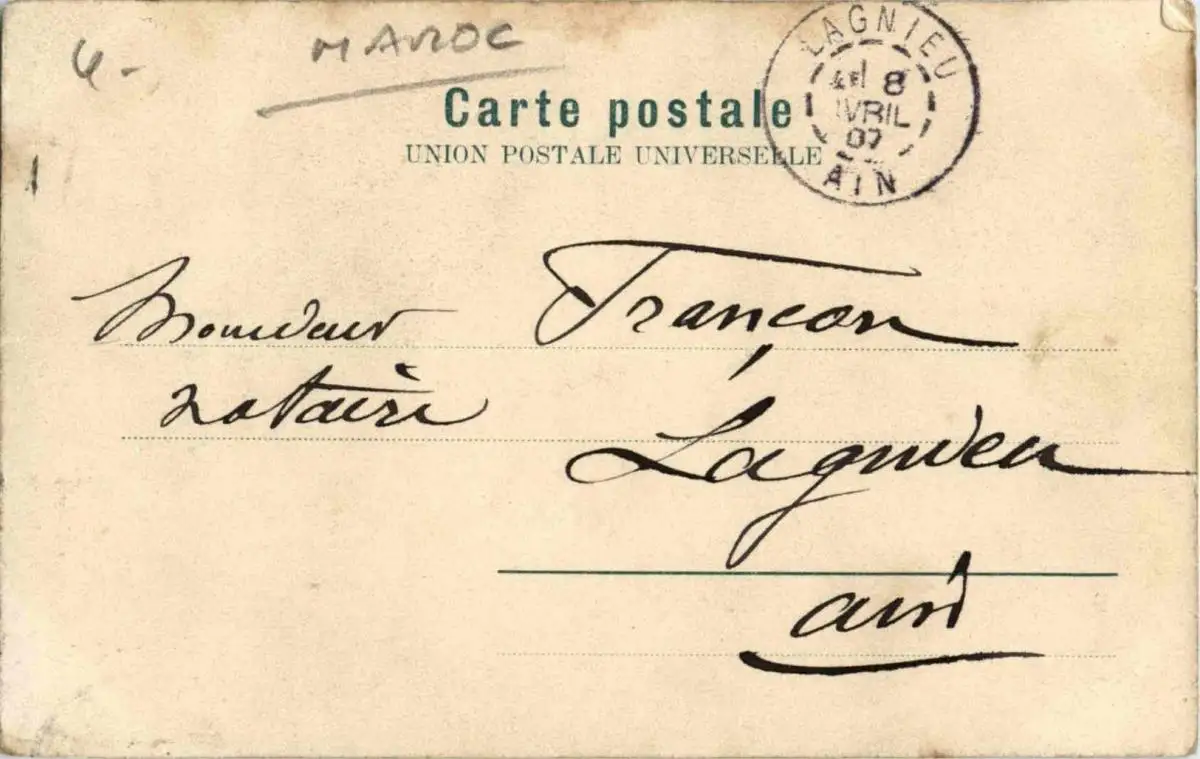 4-
MAROC
Carte postale
UNION POSTALE UNIVERSELLE
LAGNIEU
8
AVRIL
07
AIN
Monsieur Françon
notaire
Lagnieu
ain